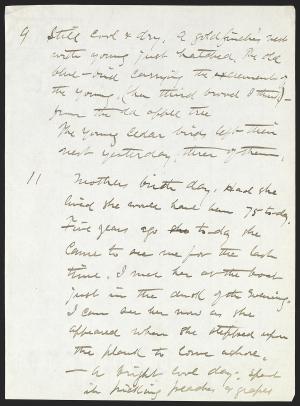 9 Still cool & dry, A goldfinches nest
with young just hatched. The old
blue-bird carrying the excrements of
the young, (her third brood I think) –
from the old apple tree
The young Cedar birds left their
nest yesterday, three of them,
11 Mothers birth day, Had she
lived she would have been 75 to-day.
Five years ago to-day she
came to see me for the last
time. I met her at the boat
just in the dusk of the Evening.
I can see her now as she
appeared when she stepped upon
the plank to come ashore,
— A bright cool day, spent
it in picking peaches & grapes